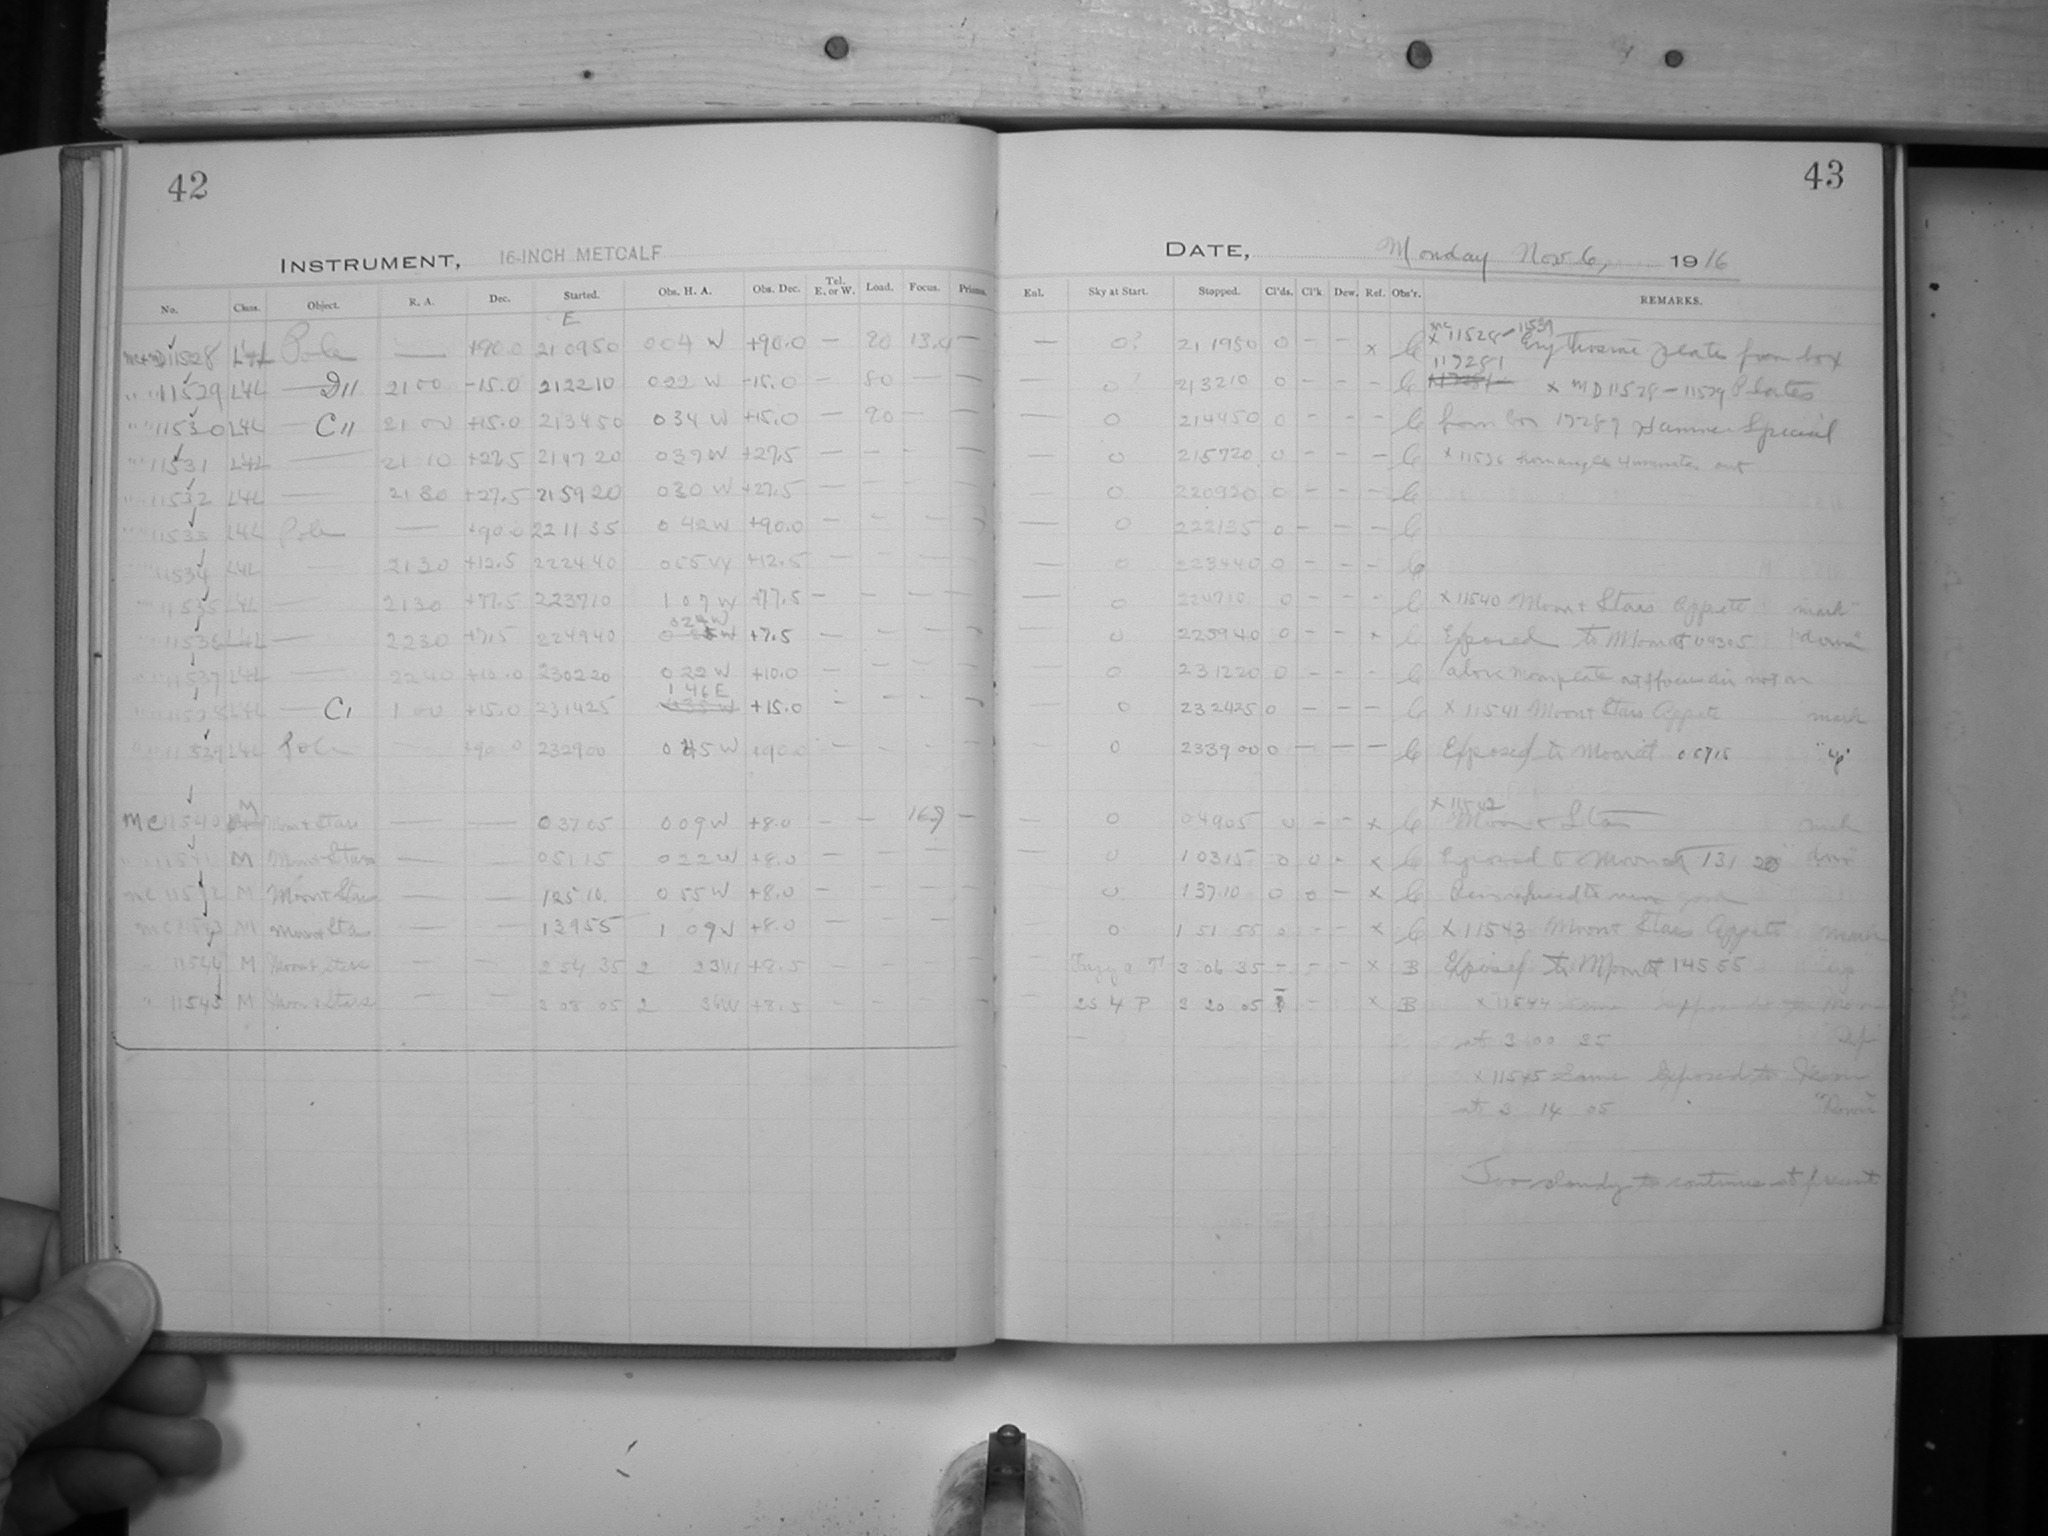 42
43
INSTRUMENT, 16-INCH METCALF
DATE, Monday Nov 6, 1916
No. Class. Object. R. A. Dec. Started. Obs. H. A. Obs. Dec. Tel. E. or W. Load. Focus. Prisms. Enl. Sky at Start. Stopped. Cl'ds. Cl'k Dew. Ref. Obs'r. REMARKS.
E
11528 L4L Pole — +90.0 210950 004 W +90.0 — 80 13.0 — — 0? 211950 0 - - x C x 11528-11539 Erythrosine plates from box
" " 11529 L4L — D11 2100 -15.0 212210 022 W -15.0 — 80 — — 0 213210 0 - - - C 117281 x MD 11528-11529 Plates
" " 11530 L4L — C11 2100 +15.0 213450 034 W +15.0 — 80 — — 0 214450 0 - - - C from box 17289 Hammer Special
" " 11531 L4L — 2110 +27.5 214720 037 W +27.5 — 0 215720 0 - - - C x 11536 hour angle 4 minutes out
" " 11532 L4L — 2130 +27.5 215920 030 W +27.5 — 0 220920 0 - - - C
" " 11533 L4L Pole — +90.0 221135 042 W +90.0 — 0 222135 0 - - - C
11534 L4L — 2130 +12.5 222440 055 W +12.5 — 0 223440 0 - - - C
11535 L4L — 2130 +77.5 223710 107 W +77.5 — 0 224710 0 - - - C x 11540 Moon & Stars Opposite mark
11536 L4L — 2230 +7.5 224940 024 W +7.5 — 0 225940 0 - - x C Exposed to Moon at 04305 "down"
11537 L4L — 2240 +10.0 230220 022 W +10.0 — 0 231220 0 - - - C above Moon plate out of focus
11538 L4L — C1 100 +15.0 231425 146 E +15.0 — 0 232425 0 - - - C x 11541 Moon & Stars mark
11539 L4L Pole — +90.0 232900 045 W +90.0 — 0 233900 0 — — — C Exposed to Moon at 05715 "up"
x 11542
MC 11540 M Moon & Stars — — 03705 009 W +8.0 — — 16.9 — — 0 04905 0 - - x C Moon & Stars mark
11541 M Moon & Stars — — 05115 022 W +8.0 — 0 10315 0 0 - x C Exposed to Moon at 13120 "down"
MC 11542 M Moon & Stars — — 12510 055 W +8.0 — 0 13710 0 0 - x C
M Moon & Stars — — 13955 109 W +8.0 — 0 15155 0 - - x C x 11543 Moon & Stars Opposite mark
" 11544 M Moon & Stars — — 25435 2 23 W +8.5 — 3 06 35 - - - x B Exposed to Moon at 14555 "up"
" 11545 M Moon & Stars — — 3 08 05 2 36 W +8.5 — 25 4 P 3 20 05 x B x 11544 Same Exposed to Moon
at 3 00 35 "Up"
x 11545 Same Exposed to Moon
at 3 14 05 "Down"
Too cloudy to continue at present